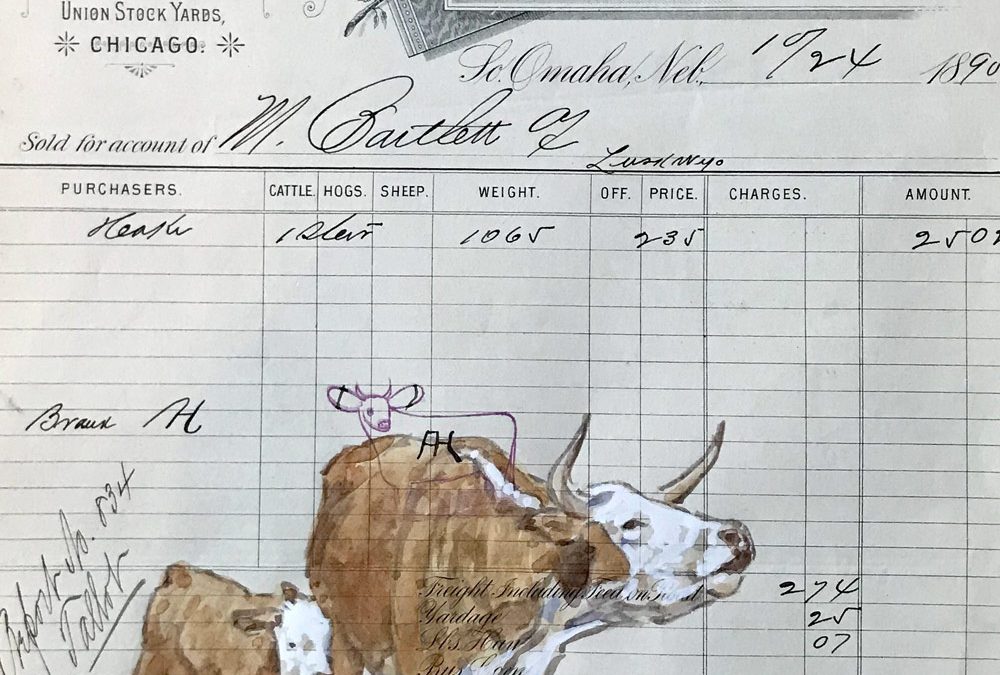 UNION STOCK YARDS,
CHICAGO.
So. Omaha, Neb., 10/24 1890
Sold for account of M. Bartlett
Lusk Wyo
PURCHASERS. CATTLE. HOGS. SHEEP. WEIGHT. OFF. PRICE. CHARGES. AMOUNT.
1 Steer 1065 235 2502
Brand AH
AH
Report No. 834
Talbot
Freight Including Feed on Road 274
Yardage 25
07